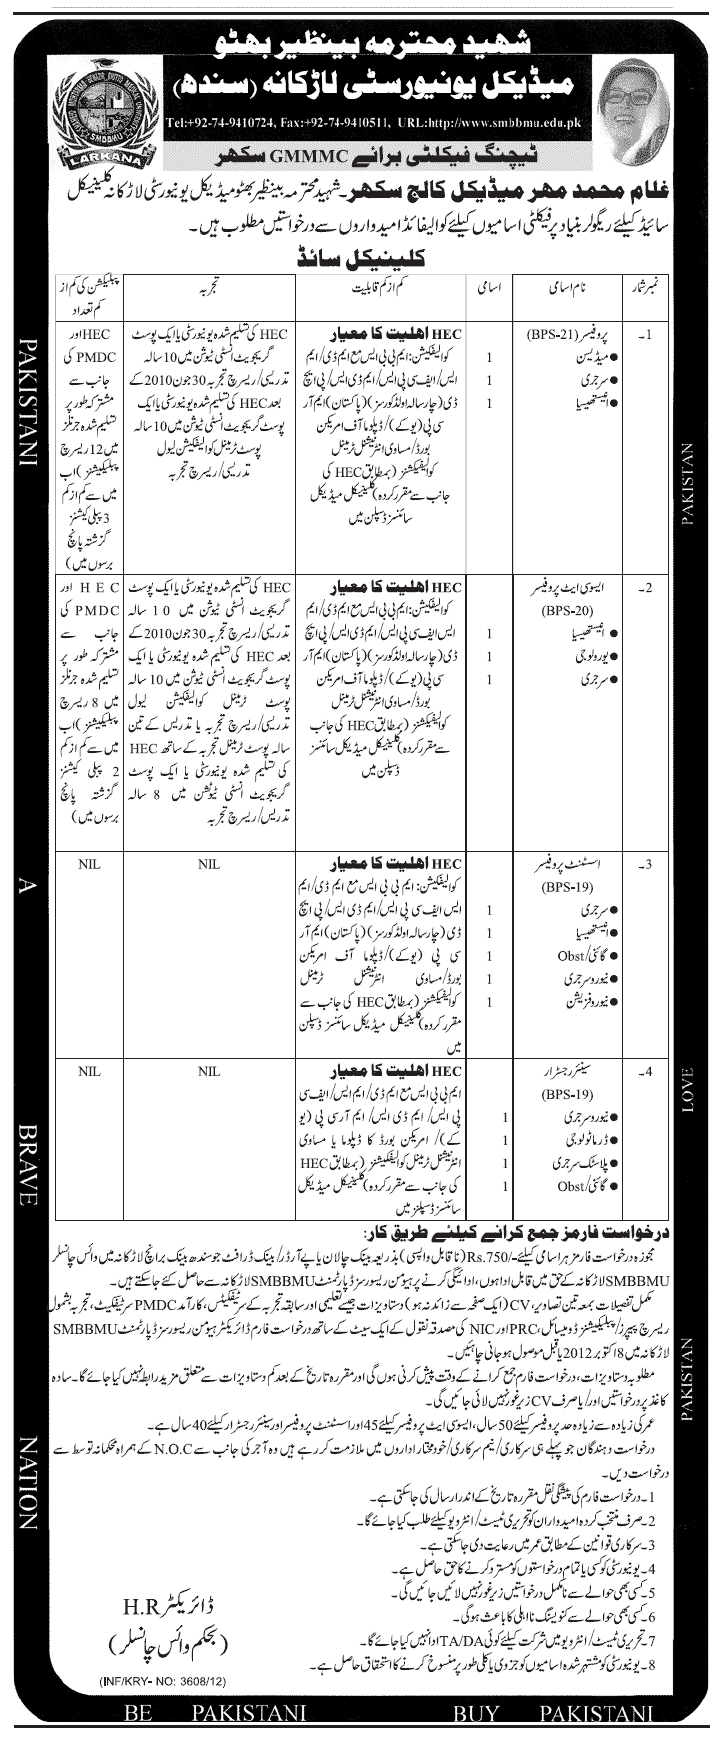 شهید محترمه بینظیر بھٹو
میڈیکل یونیورسٹی لاڑکانه (سندھ)
Tel:+92-74-9410724, Fax:+92-74-9410511, URL:http://www.smbbmu.edu.pk
LARKANA
ٹیچنگ فیکلٹی برائے GMMMC سکھر
غلام محمد مهر میڈیکل کالج سکھر۔ شہید محترمہ بینظیر بھٹو میڈیکل یونیورسٹی لاڑکانہ کلینیکل
سائیڈ کیلئے ریگولر بنیاد پر فیکلٹی اسامیوں کیلئے کوالیفائڈ امیدواروں سے درخواستیں مطلوب ہیں۔
کلینیکل سائڈ
نمبر شمار
نام اسامی
اسامی
کم از کم قابلیت
تجربہ
پبلیکیشن کی کم از
کم تعداد
1۔
پروفیسر (BPS-21)
● میڈیسن 1
● سرجری 1
● انیستھیسیا 1
HEC اهلیت کا معیار
کوالیفکیشن: ایم بی بی ایس مع ایم ڈی/ ایم
ایس/ ایف سی پی ایس/ ایم ڈی ایس/ پی ایچ
ڈی (چار سالہ اولڈ کورسز) (پاکستان) ایم آر
سی پی (یو کے)/ ڈپلوما آف امریکن
بورڈ/ مساوی انٹرنیشنل ٹرمینل
کوالیفکیشنز (بمطابق HEC کی
جانب سے مقرر کردہ) کلینیکل میڈیکل
سائنسز ڈسپلن میں
HEC کی تسلیم شدہ یونیورسٹی یا ایک پوسٹ
گریجویٹ انسٹی ٹیوشن میں 10 سالہ
تدریسی/ ریسرچ تجربہ 30 جون 2010 کے
بعد HEC کی تسلیم شدہ یونیورسٹی یا ایک
پوسٹ گریجویٹ انسٹی ٹیوشن میں 10 سالہ
پوسٹ ٹرمینل کوالیفکیشن لیول
تدریسی/ ریسرچ تجربہ
HEC اور
PMDC کی
جانب سے
مشترکہ طور پر
تسلیم شدہ جرنلز
میں 12 ریسرچ
پبلیکیشنز (اب
میں سے کم از کم
3 پبلی کیشنز
گزشتہ پانچ
برسوں میں)
2۔
ایسوسی ایٹ پروفیسر
(BPS-20)
● انیستھیسیا 1
● یورولوجی 1
● سرجری 1
HEC اهلیت کا معیار
کوالیفکیشن: ایم بی بی ایس مع ایم ڈی/ ایم
ایس ایف سی پی ایس/ ایم ڈی ایس/ پی ایچ
ڈی (چار سالہ اولڈ کورسز) (پاکستان) ایم آر
سی پی (یو کے)/ ڈپلوما آف امریکن
بورڈ/ مساوی انٹرنیشنل ٹرمینل
کوالیفکیشنز (بمطابق HEC کی جانب
سے مقرر کردہ) کلینیکل میڈیکل سائنسز
ڈسپلن میں
HEC کی تسلیم شدہ یونیورسٹی یا ایک پوسٹ
گریجویٹ انسٹی ٹیوشن میں 10 سالہ
تدریسی/ ریسرچ تجربہ 30 جون 2010 کے
بعد HEC کی تسلیم شدہ یونیورسٹی یا ایک
پوسٹ گریجویٹ انسٹی ٹیوشن میں 10 سالہ
پوسٹ ٹرمینل کوالیفکیشن لیول
تدریسی/ ریسرچ تجربہ یا تدریس کے تین
سالہ پوسٹ ٹرمینل تجربہ کے ساتھ HEC
کی تسلیم شدہ یونیورسٹی یا ایک پوسٹ
گریجویٹ انسٹی ٹیوشن میں 8 سالہ
تدریس/ ریسرچ تجربہ
HEC اور
PMDC کی
جانب سے
مشترکہ طور پر
تسلیم شدہ جرنلز
میں 8 ریسرچ
پبلیکیشنز (اب
میں سے کم از کم
2 پبلی کیشنز
گزشتہ پانچ
برسوں میں)
3۔
اسسٹنٹ پروفیسر
(BPS-19)
● سرجری 1
● انیستھیسیا 1
● گائنی/Obst 1
● نیورو سرجری 1
● نیورو فزیشن 1
HEC اهلیت کا معیار
کوالیفکیشن: ایم بی بی ایس مع ایم ڈی/ ایم
ایس ایف سی پی ایس/ ایم ڈی ایس/ پی ایچ
ڈی (چار سالہ اولڈ کورسز) (پاکستان) ایم آر
سی پی (یو کے)/ ڈپلوما آف امریکن
بورڈ/ مساوی انٹرنیشنل ٹرمینل
کوالیفکیشنز (بمطابق HEC کی جانب سے
مقرر کردہ) کلینیکل میڈیکل سائنسز ڈسپلن
میں
NIL
NIL
4۔
سینئر رجسٹرار
(BPS-19)
● نیورو سرجری 1
● ڈرماٹولوجی 1
● پلاسٹک سرجری 1
● گائنی/Obst 1
HEC اهلیت کا معیار
ایم بی بی ایس مع ایم ڈی/ ایم ایس/ ایف سی
پی ایس/ ایم ڈی ایس/ ایم آر سی پی (یو
کے)/ امریکن بورڈ کا ڈپلوما یا مساوی
انٹرنیشنل ٹرمینل کوالیفکیشنز (بمطابق HEC
کی جانب سے مقرر کردہ) کلینیکل میڈیکل
سائنسز ڈسپلنز میں
NIL
NIL
درخواست فارمز جمع کرانے کیلئے طریق کار:
مجوزہ درخواست فارمز ہر اسامی کیلئے -/Rs.750 (ناقابل واپسی) بذریعہ بینک چالان یا پے آرڈر/ بینک ڈرافٹ جو سندھ بینک برانچ لاڑکانہ میں وائس چانسلر
SMBBMU لاڑکانہ کے حق میں قابل ادا ہوں، ادائیگی کرنے پر ہیومن ریسورسز ڈپارٹمنٹ SMBBMU لاڑکانہ سے حاصل کئے جاسکتے ہیں۔
مکمل تفصیلات بمعہ تین تصاویر، CV (ایک صفحے سے زائد نہ ہو) دستاویزات جیسے تعلیمی اور سابقہ تجربہ کے سرٹیفکیٹس، کارآمد PMDC سرٹیفکیٹ، تجربہ بشمول
ریسرچ پیپرز/ پبلیکیشنز ڈومیسائل، PRC اور NIC کی مصدقہ نقول کے ایک سیٹ کے ساتھ درخواست فارم ڈائریکٹر ہیومن ریسورسز ڈپارٹمنٹ SMBBMU
لاڑکانہ میں 8 اکتوبر 2012 یا قبل موصول ہو جانی چاہئیں۔
مطلوبہ دستاویزات، درخواست فارم جمع کرانے کے وقت پیش کرنی ہوں گی اور مقررہ تاریخ کے بعد کم دستاویزات سے متعلق مزید رابطہ نہیں کیا جائے گا۔ سادہ
کاغذ پر درخواستیں اور/ یا صرف CV زیر غور نہیں لائی جائیں گی۔
عمر کی زیادہ سے زیادہ حد پروفیسر کیلئے 50 سال، ایسوسی ایٹ پروفیسر کیلئے 45 اور اسسٹنٹ پروفیسر اور سینئر رجسٹرار کیلئے 40 سال ہے۔
درخواست دہندگان جو پہلے ہی سرکاری/ نیم سرکاری/ خودمختار اداروں میں ملازمت کر رہے ہیں وہ آجر کی جانب سے N.O.C کے ہمراہ محکمانہ توسط سے
درخواست دیں۔
1۔ درخواست فارم کی پیشگی نقل مقررہ تاریخ کے اندر ارسال کی جاسکتی ہے۔
2۔ صرف منتخب کردہ امیدواران کو تحریری ٹیسٹ/ انٹرویو کیلئے طلب کیا جائے گا۔
3۔ سرکاری قوانین کے مطابق عمر میں رعایت دی جاسکتی ہے۔
4۔ یونیورسٹی کو کسی یا تمام درخواستوں کو مسترد کرنے کا حق حاصل ہے۔
5۔ کسی بھی حوالے سے نامکمل درخواستیں زیر غور نہیں لائیں جائیں گی۔
6۔ کسی بھی حوالے سے کنوینسنگ نااہلی کا باعث ہوگی۔
7۔ تحریری ٹیسٹ/ انٹرویو میں شرکت کیلئے کوئی TA/DA ادا نہیں کیا جائے گا۔
8۔ یونیورسٹی کو مشتہر شدہ اسامیوں کو جزوی یا کلی طور پر منسوخ کرنے کا استحقاق حاصل ہے۔
ڈائریکٹر H.R
(بحکم وائس چانسلر)
(INF/KRY- NO: 3608/12)
PAKISTANI A BRAVE NATION
PAKISTAN LOVE PAKISTAN
BE PAKISTANI BUY PAKISTANI